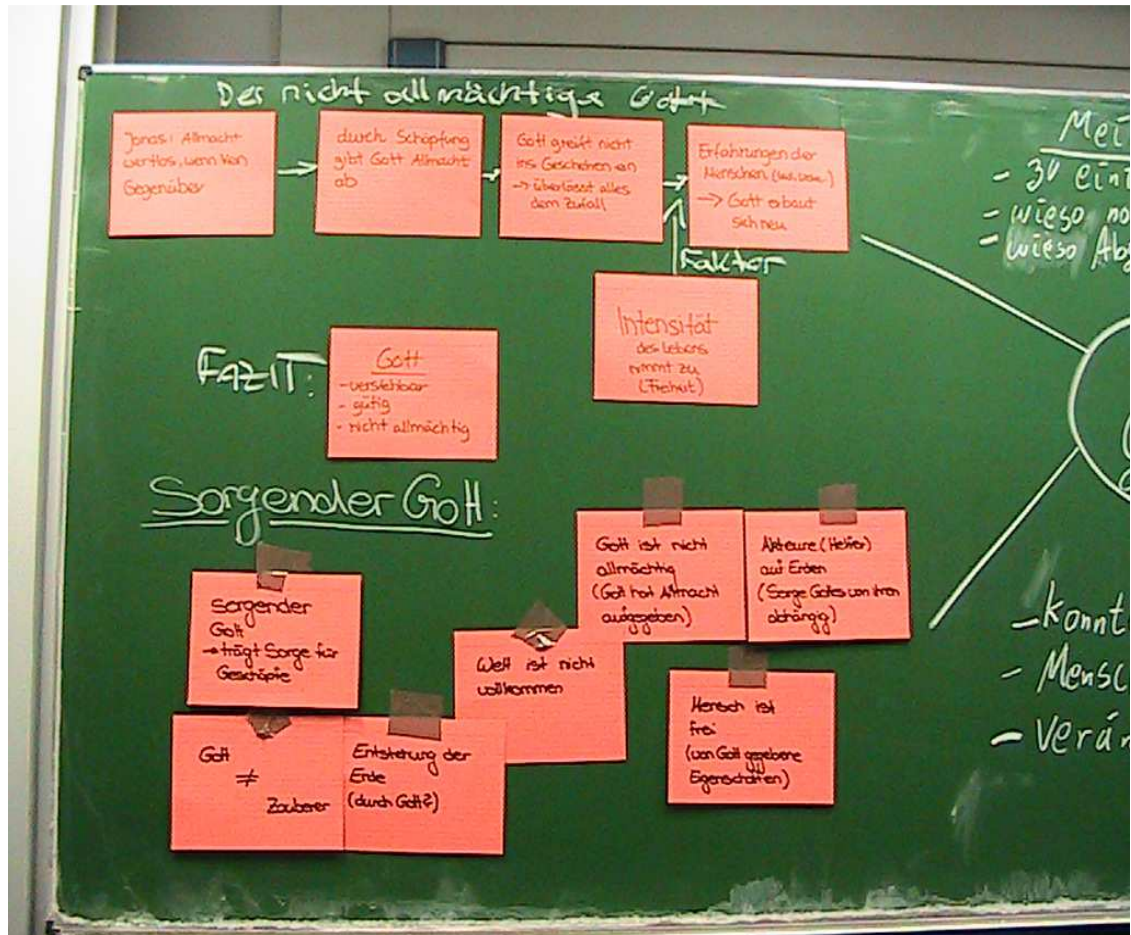 Der nicht allmächtige Gott
Jonas: Allmacht
wertlos, wenn kein
Gegenüber
durch Schöpfung
gibt Gott Allmacht
ab
Gott greift nicht
ins Geschehen ein
→ überlässt alles
dem Zufall
Erfahrungen der
Menschen
→ Gott erbaut
sich neu
Faktor
Intensität
des Lebens
nimmt zu
(Freiheit)
FAZIT:
Gott
- verstehbar
- gütig
- nicht allmächtig
Sorgender Gott:
Sorgender
Gott
→ trägt Sorge für
Geschöpfe
Gott
≠
Zauberer
Entstehung der
Erde
(durch Gott?)
Welt ist nicht
vollkommen
Gott ist nicht
allmächtig
(Gott hat Allmacht
aufgegeben)
Akteure (Helfer)
auf Erden
(Sorge Gottes von ihnen
abhängig)
Mensch ist
frei
(von Gott gegebene
Eigenschaften)
Mei
- zu ein
- wieso no
- wieso Ab
- konnt
- Mensc
- verän